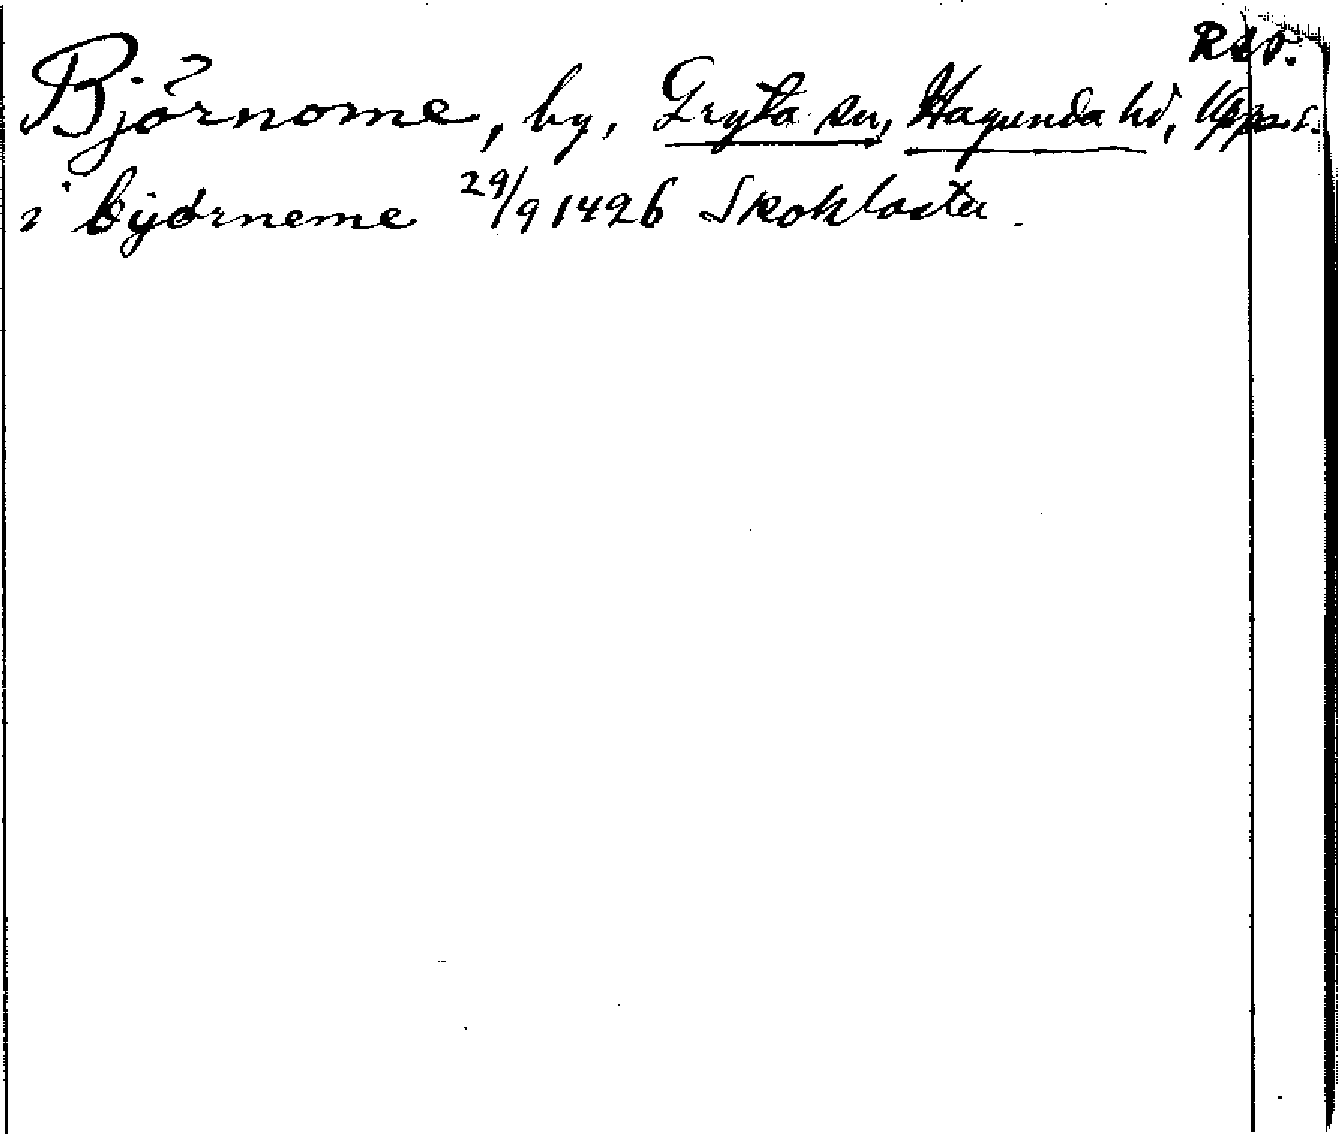 Rev.
Björnome, by, Gryta sn, Hagunda hd, Upps. l.
i biýorneme 29/9 1426 Skokloster.